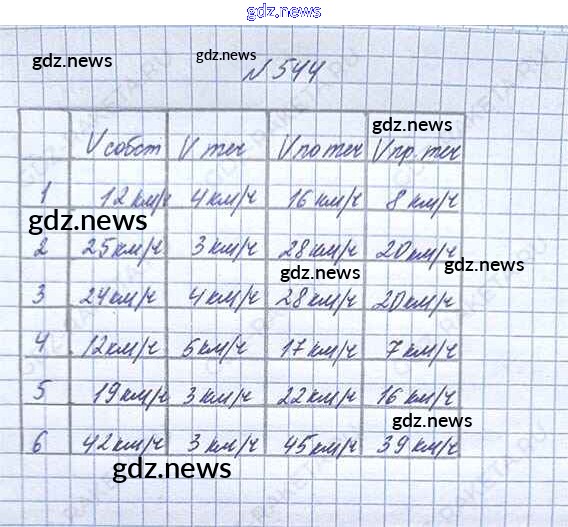 gdz.news
gdz.news
gdz.news
gdz.news
N 544
gdz.news
V собст V теч V по теч V пр. теч
1 12 км/ч 4 км/ч 16 км/ч 8 км/ч
gdz.news
2 25 км/ч 3 км/ч 28 км/ч 20 км/ч
gdz.news
gdz.news
3 24 км/ч 4 км/ч 28 км/ч 20 км/ч
4 12 км/ч 5 км/ч 17 км/ч 7 км/ч
5 19 км/ч 3 км/ч 22 км/ч 16 км/ч
gdz.news
6 42 км/ч 3 км/ч 45 км/ч 39 км/ч
gdz.news